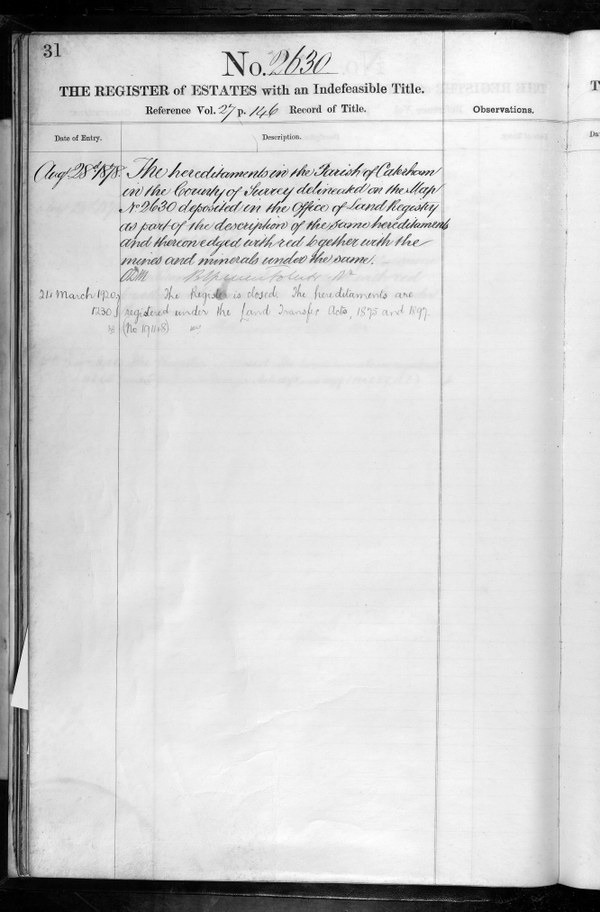 31
No. 2630
THE REGISTER of ESTATES with an Indefeasible Title.
Reference Vol. 27 p. 146 Record of Title.
Observations.
Date of Entry.
Description.
Augt 28th 1878. The hereditaments in the Parish of Caterham
in the County of Surrey delineated on the Map
No 2630 deposited in the Office of Land Registry
as part of the description of the same hereditaments
and thereon edged with red together with the
mines and minerals under the same.
24 March 1920 The Register is closed. The hereditaments are
1230 registered under the Land Transfer Acts, 1875 and 1897.